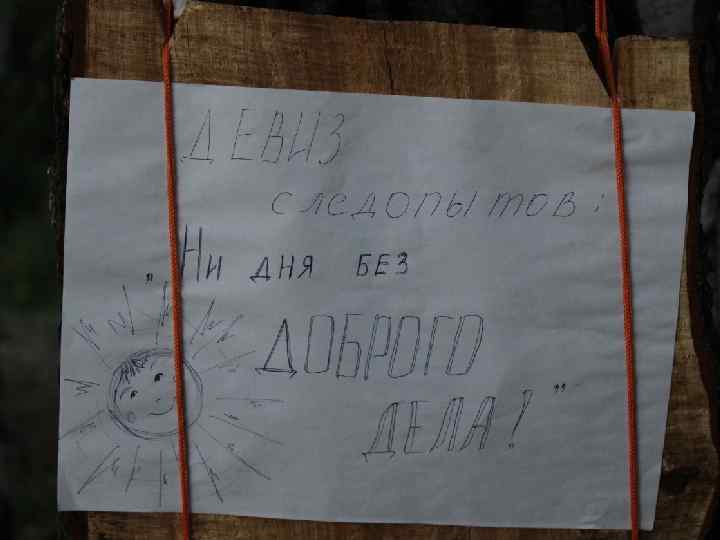 ДЕВИЗ
следопытов:
"Ни дня без
ДОБРОГО
ДЕЛА!"